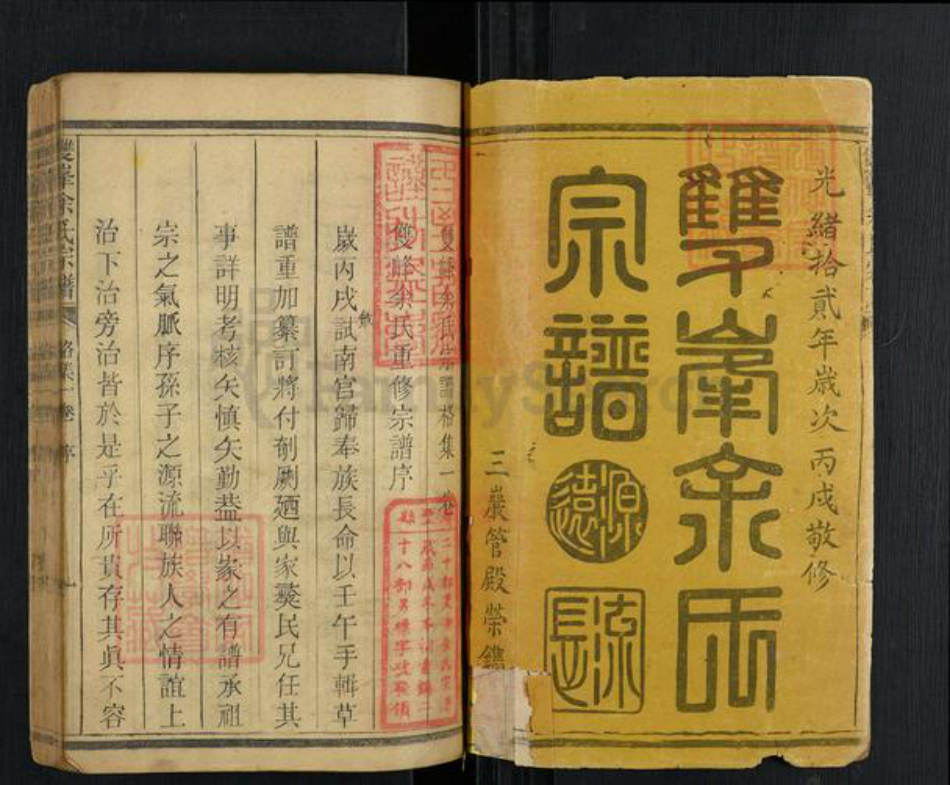 光緒拾貳年歲次丙戌敬修
雙峯余氏
宗譜
源遠
流長
三巖管殿榮鐫
雙峰余氏宗譜格集一卷
雙峰余氏重修宗譜序
歲丙戌試南宮歸奉族長命以壬午手輯草
譜重加纂訂將付剞劂廼與家爕民兄任其
事詳明考核矢慎矢勤葢以家之有譜承祖
宗之氣脈序孫子之源流聯族人之情誼上
治下治旁治皆於是乎在所貴存其眞不容
雙峯余氏宗譜 格集一卷 序 一